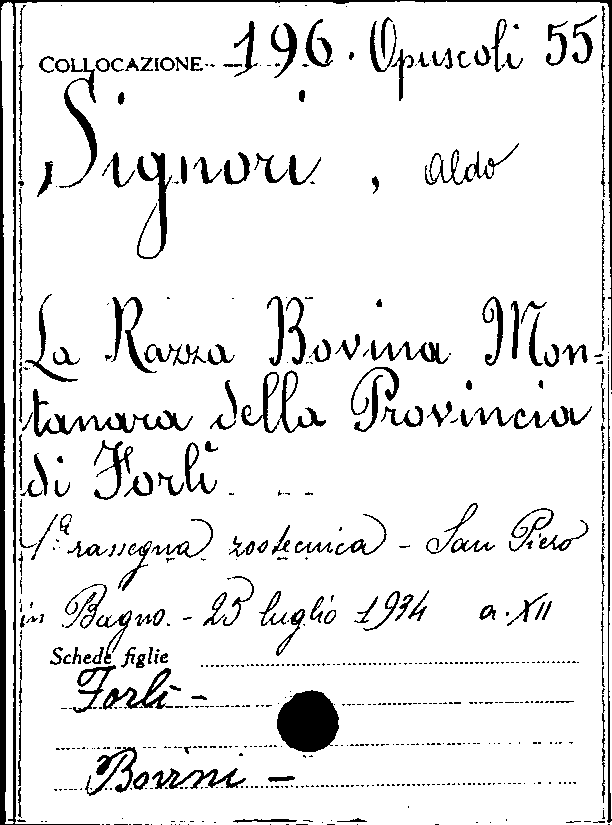 COLLOCAZIONE 196. Opuscoli 55
Signori, Aldo
La Razza Bovina Mon=
tanara della Provincia
di Forlì.
1ª rassegna zootecnica - San Piero
in Bagno. - 25 luglio 1934 a. XII
Schede figlie
Forlì -
Bovini -